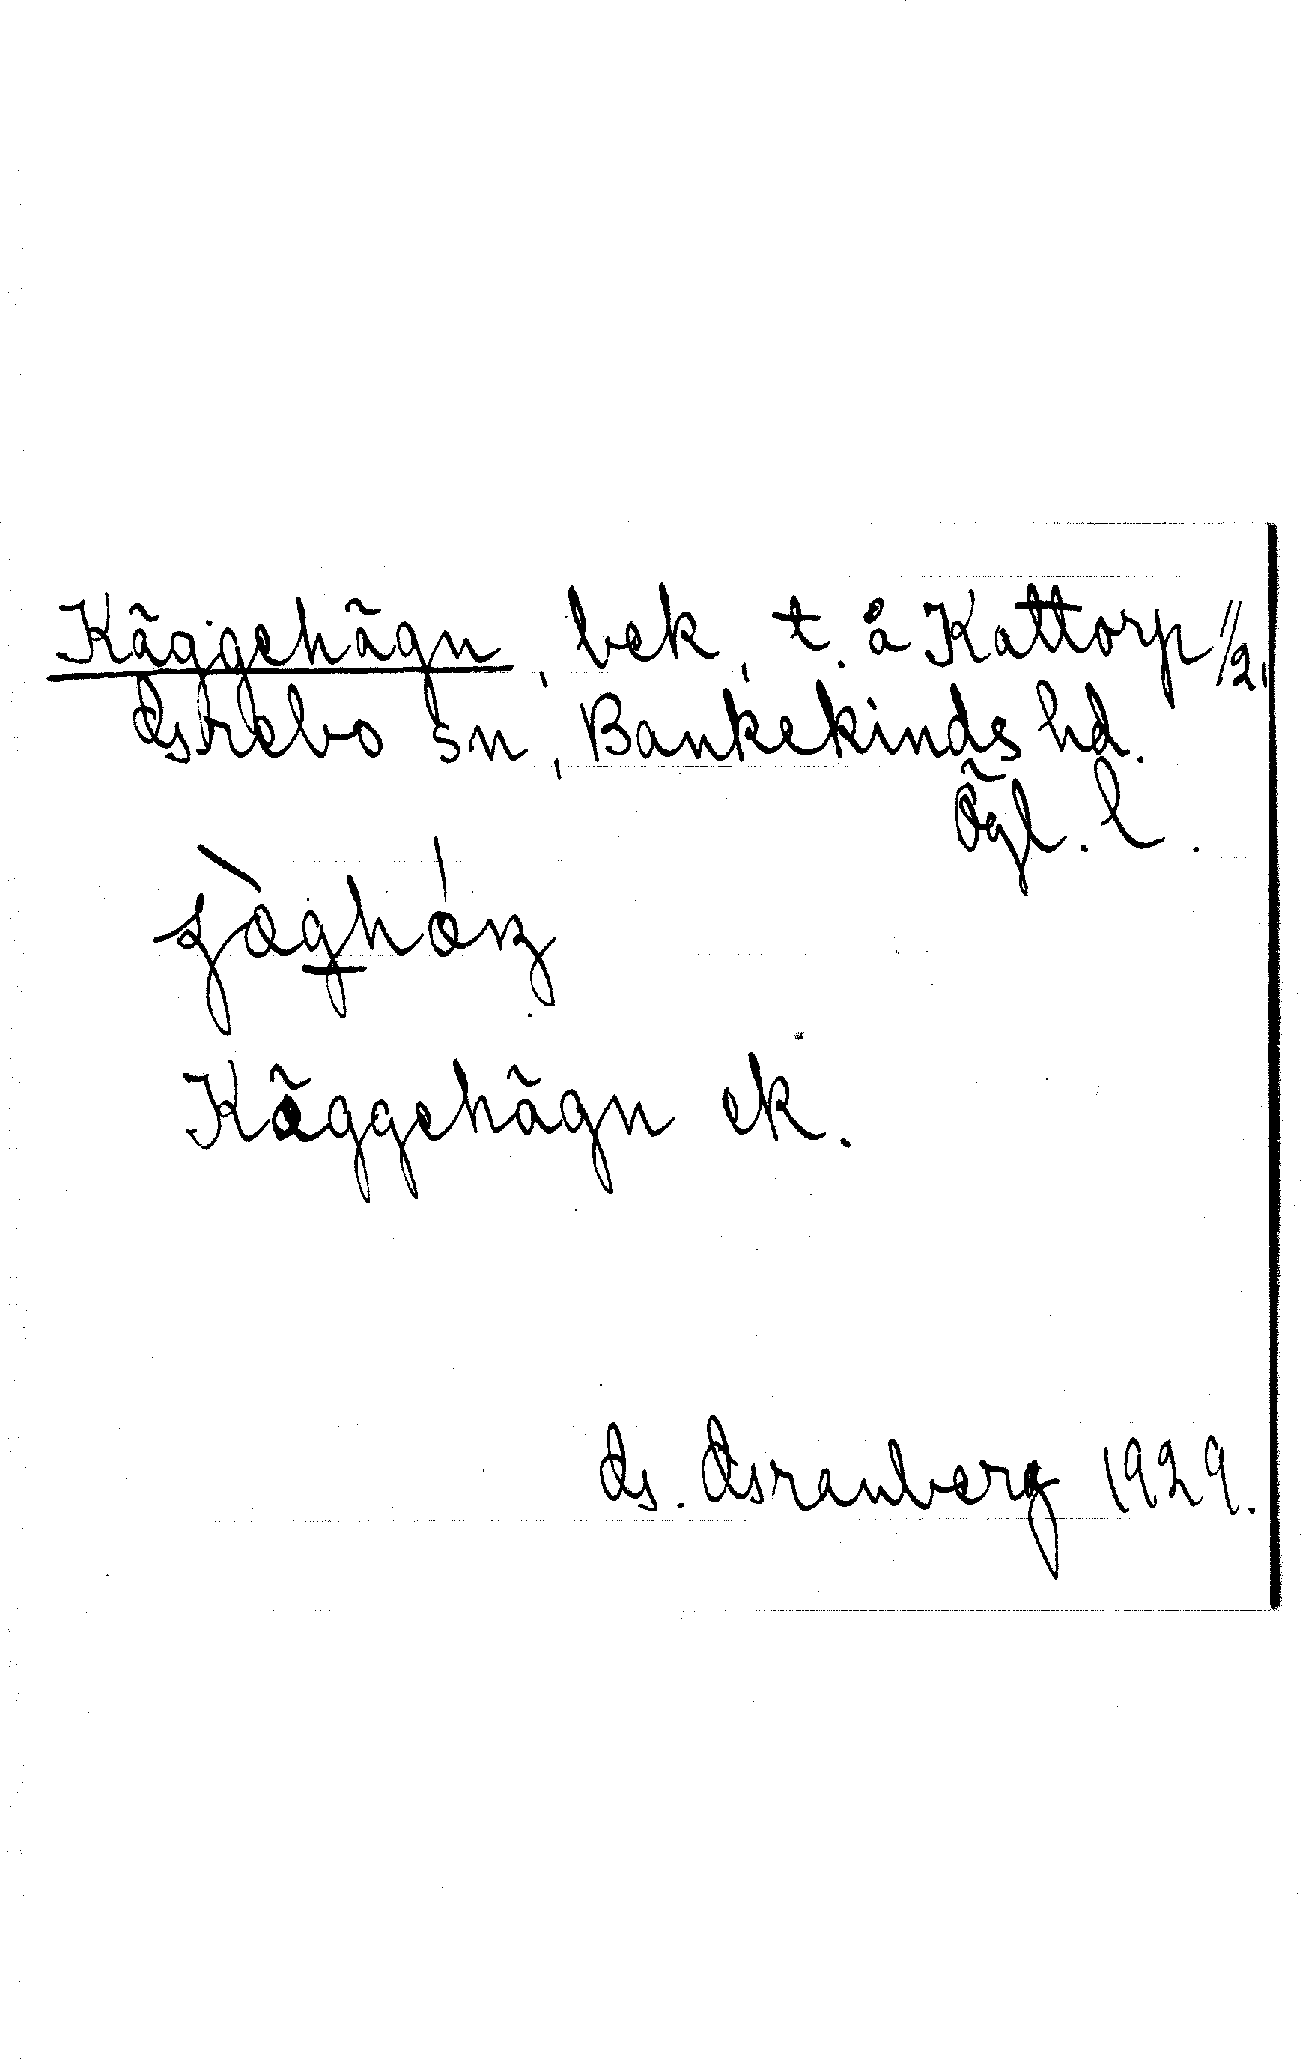 Käggehägn, bek, t. å Kattorp 1/2,
Grebo sn, Bankekinds hd.
Ögl. l.
Käggehägn ek.
G. Granberg 1929.